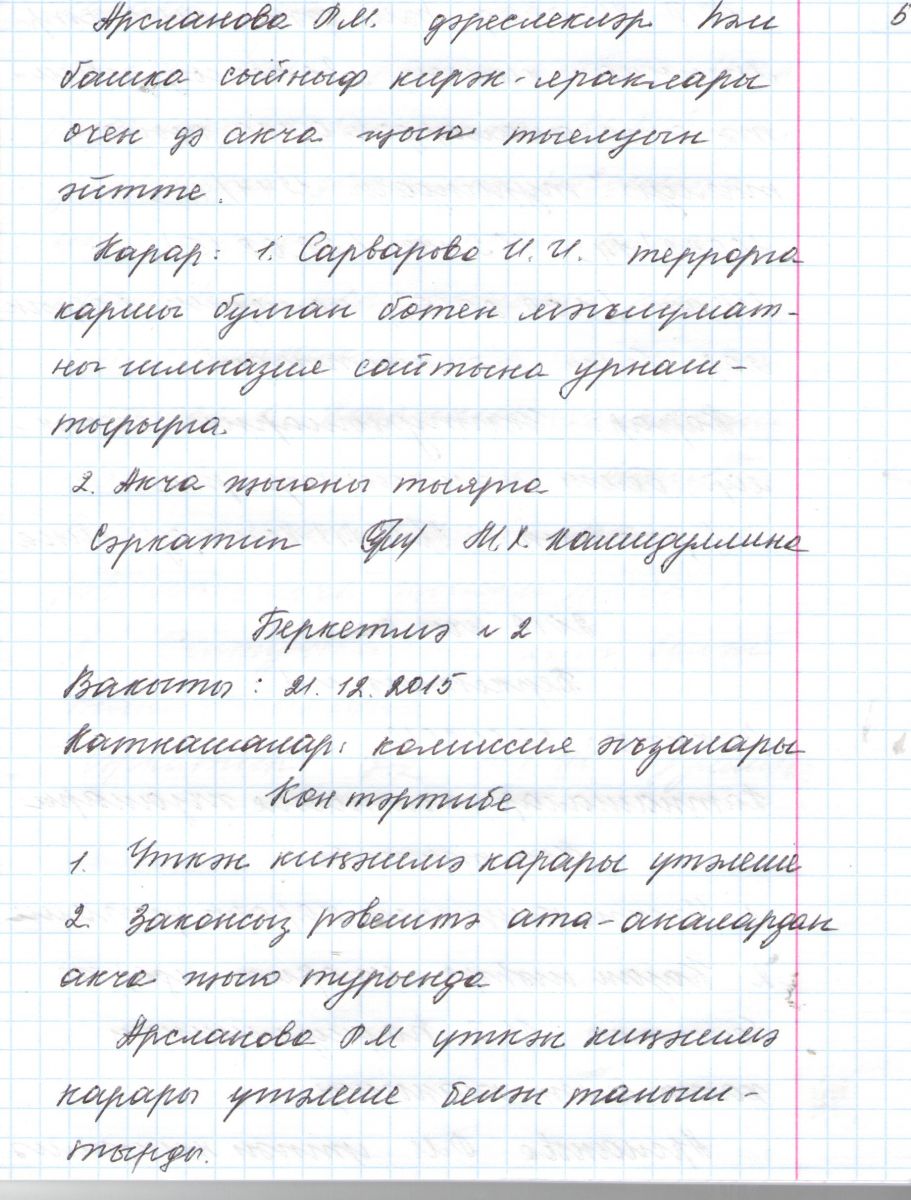 Арсланова Р.М. дәреслекләр һәм 5
башка сыйныф кирәк-яраклары
өчен дә акча җыю тыелуын
әйтте.
Карар: 1. Сарварова И.И. террорга
каршы булган бөтен мәгълүмат-
ны гимназия сайтына урнаш-
тырырга.
2. Акча җыюны тыярга
Сәркатип М.Х. Хамидуллина
Беркетмә № 2
Вакыты: 21.12.2015
Катнашалар: комиссия әгъзалары
Көн тәртибе
1. Үткән киңәшмә карары үтәлеше
2. Законсыз рәвештә ата-аналардан
акча җыю турында
Арсланова Р.М үткән киңәшмә
карары үтәлеше белән таныш-
тырды.